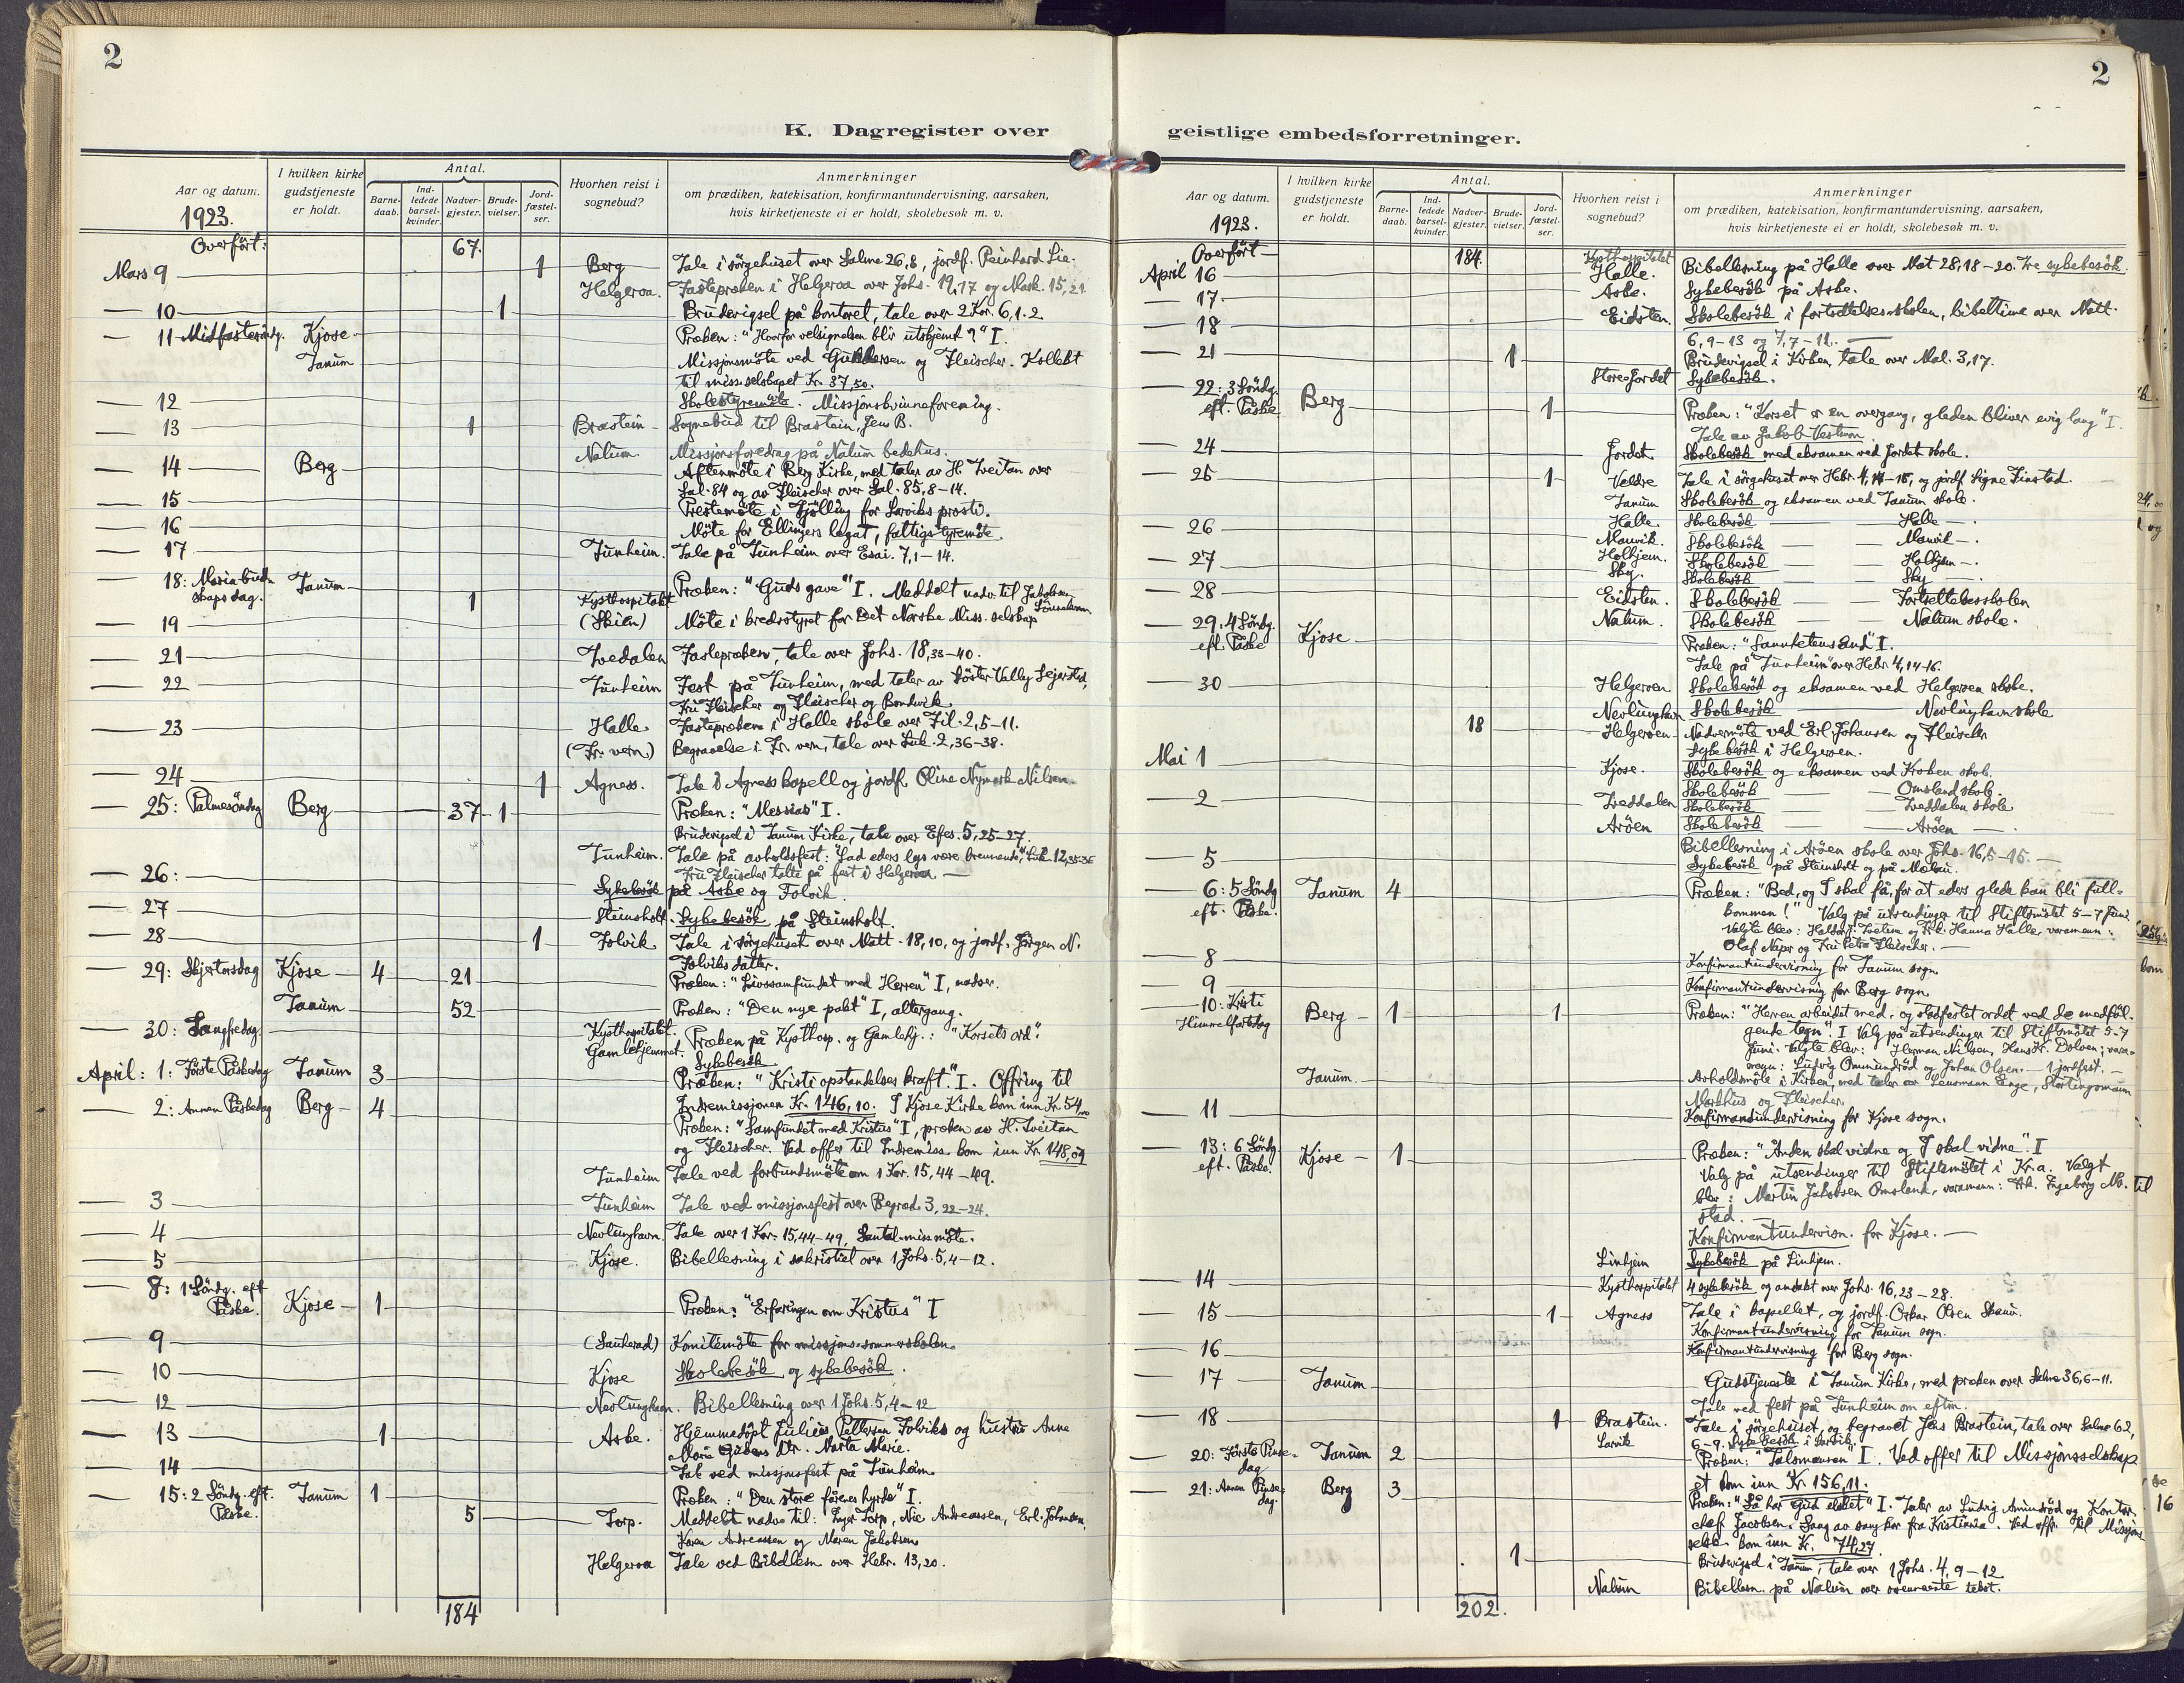 2
K. Dagregister over
Aar og datum.
I hvilken kirke gudstjeneste er holdt.
Antal.
Barne-daab.
Ind-ledede barsel-kvinder.
Nadver-gjester.
Brude-vielser.
Jord-fæstel-ser.
Hvorhen reist i sognebud?
Anmerkninger
om prædiken, katekisation, konfirmantundervisning, aarsaken,
hvis kirketjeneste ei er holdt, skolebesøk m. v.
1923.
Overført: 67.
Mars 9 1 Berg Tale i sørgehuset over Salme 26,8, jordf. Reinhard Lie.
Helgeroa. Fastepreken i Helgeroa over Johs. 19,17 og Mark. 15,21
— 10 1 Brudevigsel på kontoret, tale over 2 Kor. 6,1-2
— 11 Midfastesøndg. Kjose Preken: "Hvorfor velsignelsen blir utskjemt?" I.
Tanum Missjonsmöte ved Gundersen og Fleischer. Kollekt
til miss.selskapet Kr. 37,50.
— 12 Skolestyremöte. Missjonskvinneforening.
— 13 1 Brastein Sognebud til Brastein, Jens B.
Nalum Missjonsforedrag på Nalum bedehus.
— 14 Berg Aftenmöte i Berg Kirke, med taler av H. Tveitan over
Sal. 84 og av Fleischer over Sal. 85,8-14.
— 15 Prestemöte i Tjölling for Larviks prosti.
— 16 Möte for Ellingers legat, fattigstyremöte.
— 17 Tunheim. Tale på Tunheim over Esai. 7,1-14.
— 18: Maria bud-skaps dag. Tanum Preken: "Guds gave" I. Meddelt nadv. til Jakobsen
1 Kysthospitalet
— 19 (Skien) Möte i kredsstyret for Det Norske Miss. selskap
— 21 Tvedalen Fastepreken, tale over Johs. 18,33-40.
— 22 Tunheim Fest på Tunheim, med taler av Söster Valley Sejersted,
Fru Fleischer og Fleischer og Bondevik
— 23 Halle Fastepreken i Halle skole over Fil. 2,5-11.
(Fr. vern.) Begravelse i Fr. vern, tale over Luk. 2,36-38.
— 24 1 Agness. Tale i Agness kapell og jordf. Oline Nymark Nilsen
— 25: Palmesöndag Berg 37 1 Preken: "Messias" I.
Brudevigsel i Tanum Kirke, tale over Efes. 5,25-27.
Tunheim. Tale på avholdsfest: "Lad eders lys være brennende", Luk. 12,35-36
— 26: Fru Fleischer talte på fest i Helgeroa —
Sykebesök på Aske og Folvik.
— 27 Steinsholt. Sykebesök på Steinsholt.
— 28 1 Folvik Tale i sørgehuset over Matt. 18,10, og jordf. Jörgen N.
Folviks datter.
— 29: Skjertorsdag Kjose 4 21 Preken: "Livssamfundet med Herren" I, nadv.
Tanum 52 Preken: "Den nye pakt" I, altergang.
— 30: Langfredag. Kysthospitalet. Gamlehjemmet. Preken på Kysthosp. og Gamlehj.: "Korsets ord".
Sykebesök
April: 1: Förste Påskedag Tanum 3 Preken: "Kristi opstandelses kraft". I. Offring til
Indremissjonen Kr. 146,10. I Kjose Kirke kom inn Kr. 54,00
— 2: Annen Påskedag Berg 4 Preken: "Samfundet med Kristus" I, preken av H. Tveitan
og Fleischer. Ved offer til Indremiss. kom inn Kr. 148,09
Tunheim Tale ved forbundsmöte om 1 Kor. 15,44-49.
— 3 Tunheim Tale ved missjonsfest over Begræd. 3,22-24.
— 4 Nevlunghavn. Tale over 1 Kor. 15,44-49, Santal-miss.möte.
— 5 Kjose. Bibellesning i sakristiet over 1 Johs. 5,4-12.
— 8: 1 Söndg. eft Påske. Kjose 1 Preken: "Erfaringen om Kristus" I
— 9 (Sauherad) Komitemöte for missjons-sommerskolen.
— 10 Kjose Skolebesök og sykebesök.
— 12 Nevlunghavn. Bibellesning over 1 Johs. 5,4-12
— 13 1 Aske. Hjemmedöpt Julius Pettersen Folviks og hustru Anne
Marie Gurens dtr. Marta Marie.
— 14 Tale ved missjonsfest på Tunheim.
— 15: 2 Söndg. eft. Påske. Tanum 1 Preken: "Den store fårenes hyrde" I.
5 Torp. Meddelt nadv. til: Inger Torp, Nic Andreassen, Erl. Johansen,
Karen Andreassen og Maren Jakobsen
Helgeroa Tale ved Bibellesn over Hebr. 13,20.
184
2
geistlige embedsforretninger.
Aar og datum.
I hvilken kirke gudstjeneste er holdt.
Antal.
Barne-daab.
Ind-ledede barsel-kvinder.
Nadver-gjester.
Brude-vielser.
Jord-fæstel-ser.
Hvorhen reist i sognebud?
Anmerkninger
om prædiken, katekisation, konfirmantundervisning, aarsaken,
hvis kirketjeneste ei er holdt, skolebesøk m. v.
1923.
Overført 184. Kysthospitalet
April 16 Halle. Bibellesning på Halle over Mat 28,18-20. Tre sykebesök.
— 17 Aske. Sykebesök på Aske.
— 18 Eidsten. Skolebesök i fortsettelsesskolen, bibeltime over Matt.
6,9-13 og 7,7-12. —
— 21 1 Brudevigsel i Kirken, tale over Mal. 3,17.
Store Jordet Sykebesök.
— 22: 3 Söndg. eft. Påske Berg 1 Preken: "Korset er en overgang, gleden bliver evig lang" I.
Tale av Jakob Vestmon.
— 24 Jordet Skolebesök med eksamen ved Jordet skole.
— 25 1 Veldre Tale i sørgehuset over Hebr. 4,14-15, og jordf Signe Finstad.
Tanum Skolebesök og eksamen ved Tanum skole.
— 26 Halle. Skolebesök — — Halle —.
Manvik. Skolebesök — — Manvik —.
— 27 Holkjem. Skolebesök — — Holkjem —.
Sky. Skolebesök — — Sky —
— 28 Eidsten. Skolebesök — — Fortsettelsesskolen
Nalum. Skolebesök — — Nalum skole.
— 29. 4 Söndg. eft. Påske Kjose Preken: "Sannhetens Ånd" I.
Tale på "Tunheim" over Hebr. 4,14-16.
— 30 Helgeroen Skolebesök og eksamen ved Helgeroen skole.
Nevlunghavn Skolebesök — Nevlunghavn skole
18 Helgeroen Nadvermöte ved Erl. Johansen og Fleischer
Sykebesök i Helgeroen.
Mai 1 Kjose. Skolebesök og eksamen ved Kroken skole.
Skolebesök — — Omsland skole.
— 2 Tveddalen Skolebesök — — Tveddalen skole
Aröen Skolebesök — — Aröen —.
Bibellesning i Aröen skole over Johs. 16,5-15. —
— 5 Sykebesök på Steinsholt og på Mælau.
— 6: 5 Söndg eft. Påske. Tanum 4 Preken: "Bed, og I skal få, for at eders glede kan bli full-
kommen!" Valg på utsendinger til Stiftsmötet 5-7 Juni.
Valgte blev: Haldor Tveitan og Frk. Hanna Halle, varamenn:
Olaf Næpr og Fru Petra Fleischer. —
— 8 Konfirmantundervisning for Tanum sogn.
— 9 Konfirmantundervisning for Berg sogn.
— 10: Kristi Himmelfartsdag Berg 1 1 Preken: "Herren arbeidet med, og stadfestet ordet ved de medföl-
gende tegn". I Valg på utsendinger til Stiftsmötet 5-7
Juni. Valgte blev: Herman Nilsen, Hans Kr. Dolven; vara-
menn: Ludvig Ommundröd og Johan Olsen. — 1 jordfest. —
Tanum. Avholdsmöte i Kirken, med taler av Lensmann Enge, Stortingsmann
Markhus og Fleischer.
— 11 Konfirmandundervisning for Kjose sogn.
— 13: 6 Söndg eft. Påske. Kjose 1 Preken: "Ånden skal vidne og I skal vidne". I
Valg på utsendinger til Stiftsmötet i Kr.a. Valgt
blev: Martin Jakobsen Omsland, varamann: Frk. Ingeborg Mb.
stad.
Konfirmantundervisn. for Kjose. —
Linhjem Sykebesök på Linhjem.
— 14 Kysthospitalet 4 sykebesök og andakt over Johs. 16,23-28.
— 15 1 Agness Tale i kapellet, og jordf. Oskar Olsen Skaun.
Konfirmantundervisning for Tanum sogn.
— 16 Konfirmantundervisning for Berg sogn.
— 17 Tanum Gudstjeneste i Tanum Kirke, med preken over Salme 36,6-11.
Tale ved fest på Tunheim om eftm.
— 18 1 Brastein. Tale i sørgehuset, og begravet Jens Brastein, tale over Salme 62,
Larvik 6-9. Sykebesök i Larvik.
— 20: Förste Pinse-dag Tanum 2 Preken: "Talsmannen" I. Ved offer til Missjonsselskap
et kom inn Kr. 156,11.
— 21: Annen Pinse-dag. Berg 3 Preken: "Så har Gud elsket" I. Taler av Ludvig Amundröd og Kontor-
chef Jacobsen. Sang av sangkor fra Kristiania. Ved offr. til Missjons
selsk. kom inn Kr. 74,27.
1 Brudevigsel i Tanum, tale over 1 Johs. 4,9-12
Nalum Bibellesn. på Nalum over ovennevnte tekst.
202.